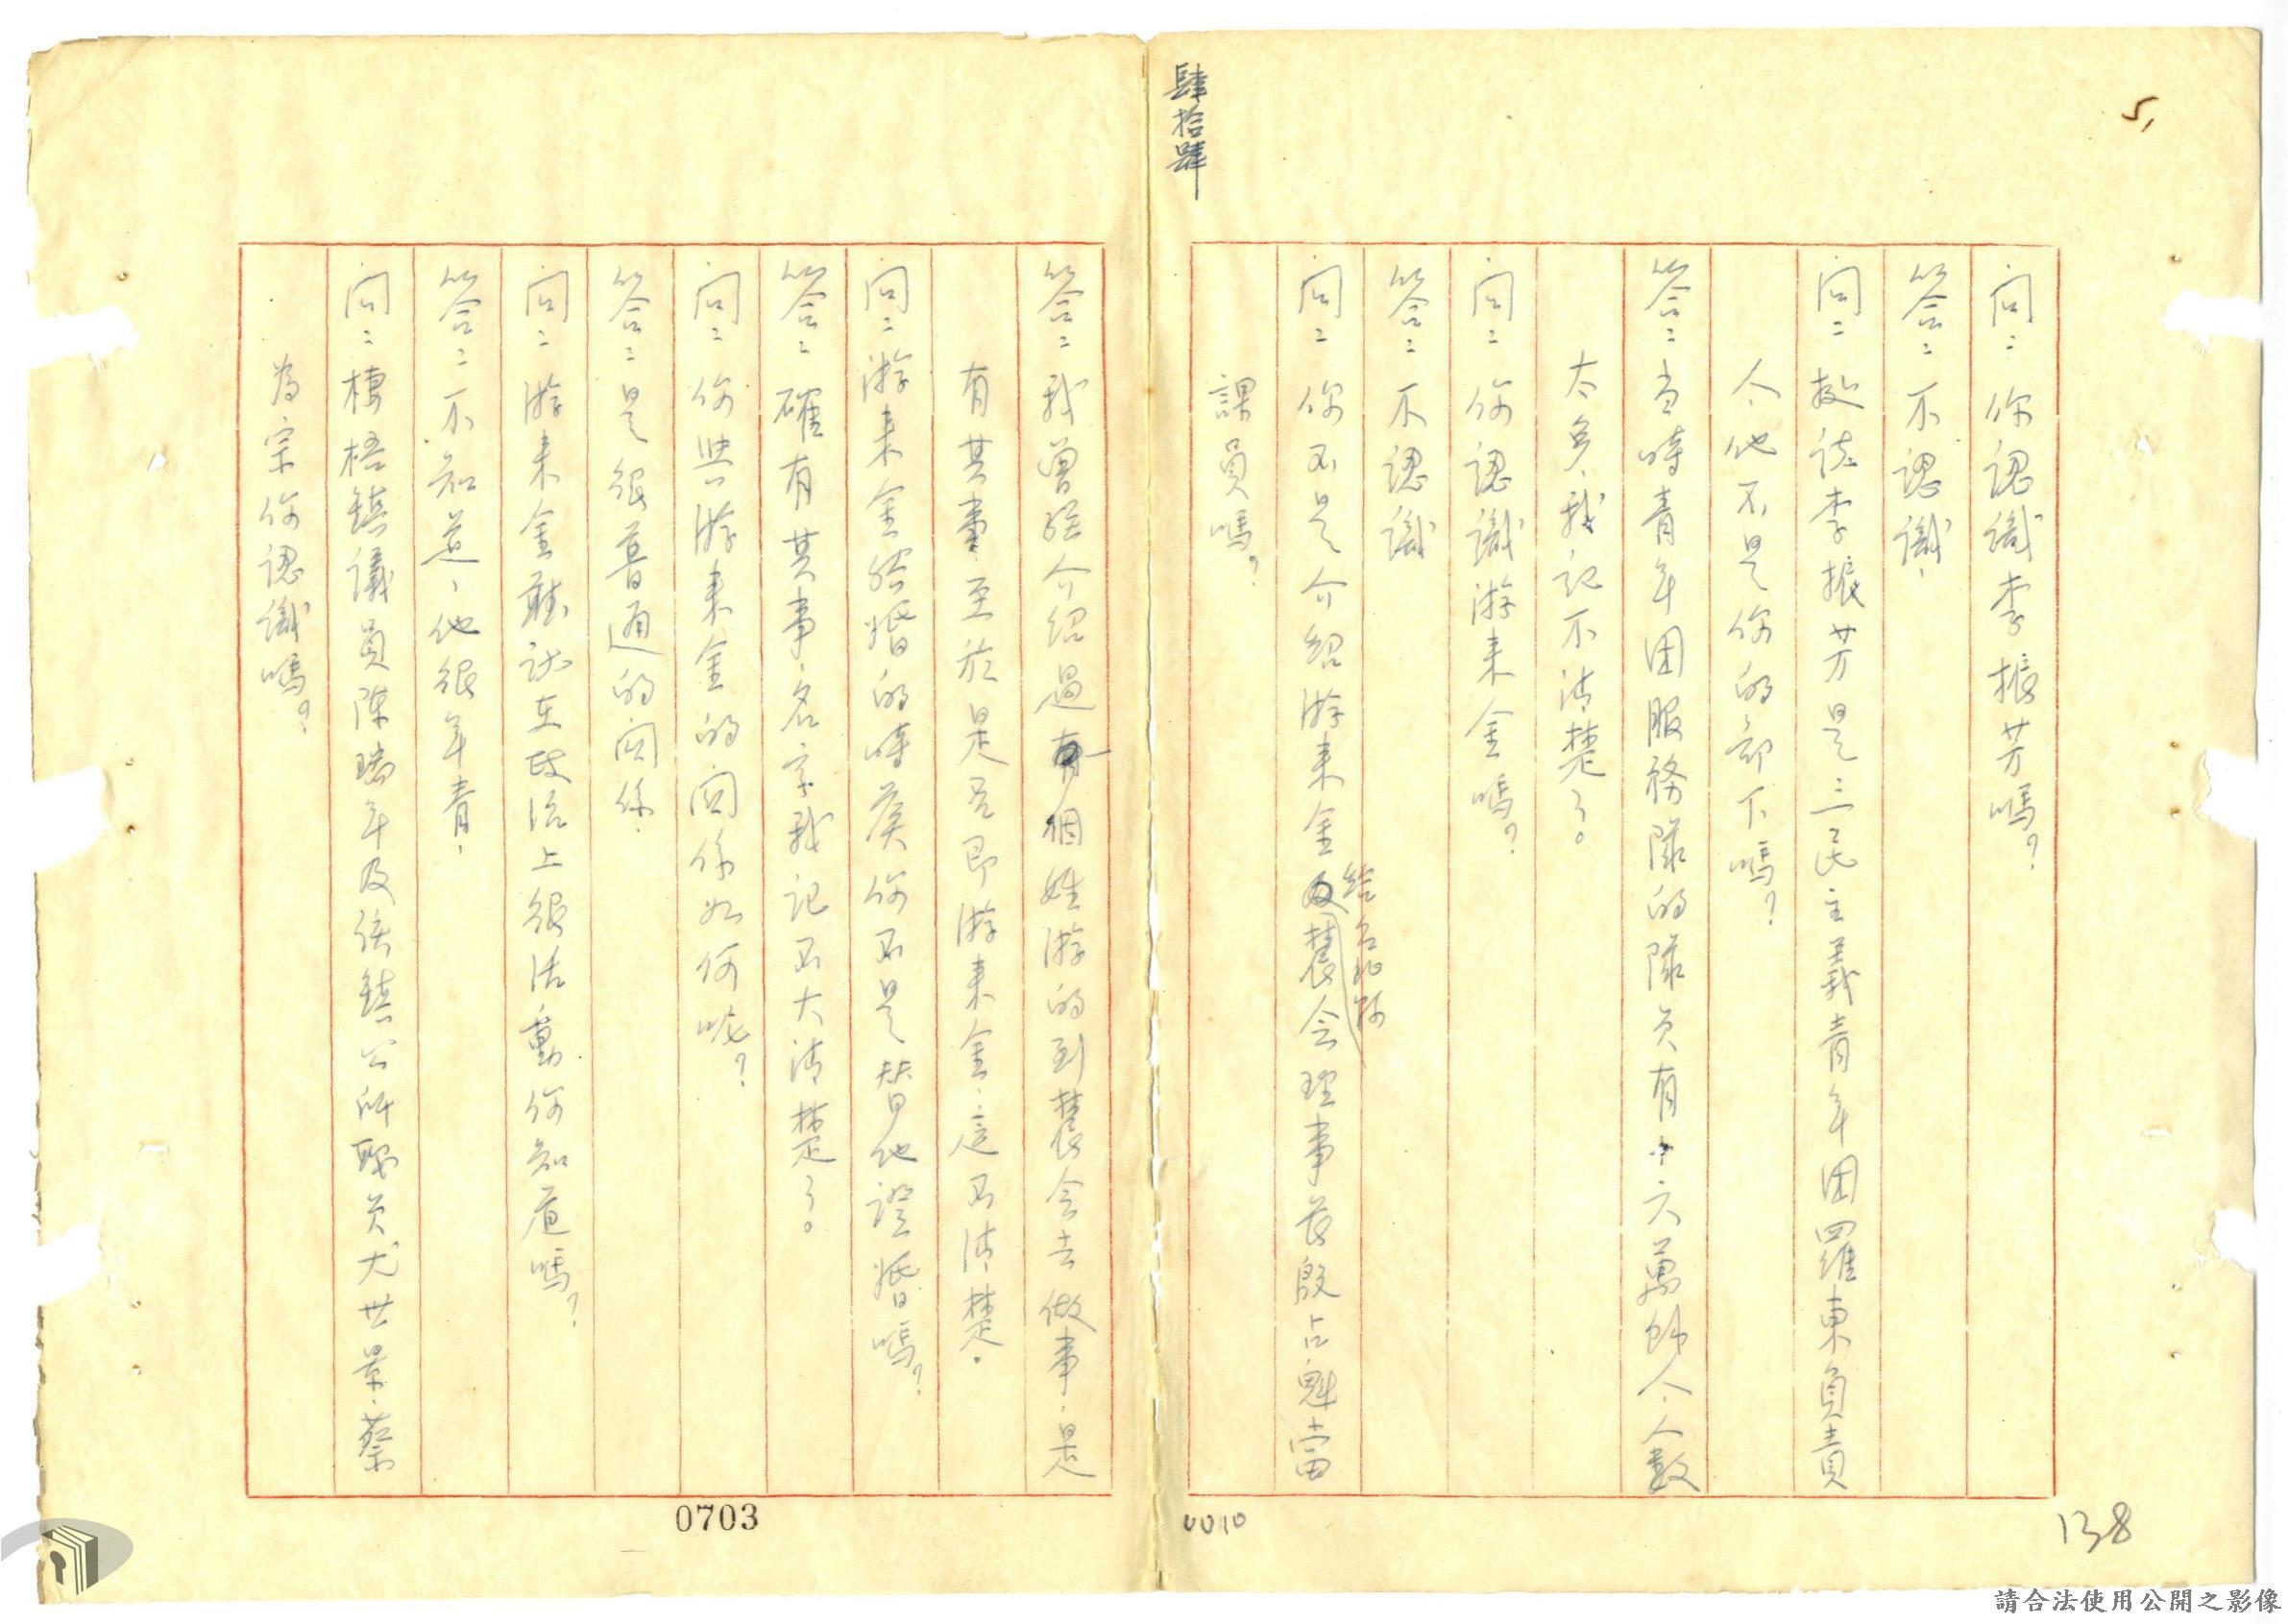 5,
肆拾肆
問：你認識李振芳嗎？
答：不認識，
問：據說李振芳是三民主義青年团羅東負責
人、他不是你的部下嗎？
答：当時青年团服務隊的隊员有十六萬餘人、人數
太多、我記不清楚了。
問：你認識游来金嗎？
答：不認識
問：你不是介紹游来金給台北縣農会理事長殷占魁當
課員嗎？
答：我曾經介紹過有個姓游的到農会去做事，是
有其事，至於是否即游来金，這不清楚。
問：游来金結婚的時候你不是替他證婚嗎？
答：確有其事，名字我記不大清楚了。
問：你與游来金的関係如何呢？
答：是很普通的関係，
問：游来金聽說在政治上很活動你知道嗎？
答：不知道，他很年青，
問：棲梧鎮議員陳瑞年及該鎮公所職员尤世景，蔡
為宗你認識嗎？
0703
0010
138
請合法使用公開之影像